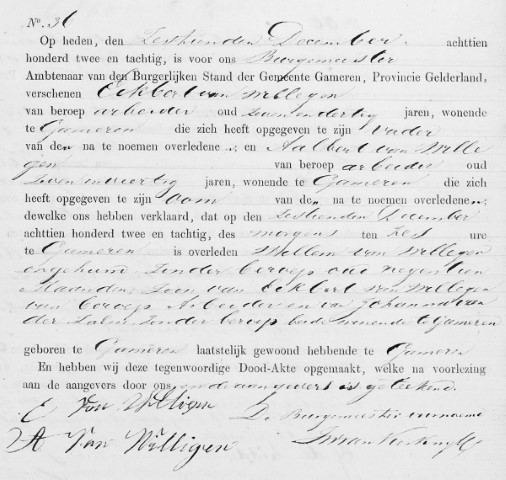 No. 36
Op heden, den Zestienden December achttien
honderd twee en tachtig, is voor ons Burgemeester
Ambtenaar van den Burgerlijken Stand der Gemeente Gameren, Provincie Gelderland,
verschenen Eckbert van Willegen
van beroep arbeider oud zevenendertig jaren, wonende
te Gameren die zich heeft opgegeven te zijn Vader
van den na te noemen overledene ; en Aalbert van Wille
gen van beroep arbeider oud
zevenenveertig jaren, wonende te Gameren die zich
heeft opgegeven te zijn oom van den na te noemen overledene ;
dewelke ons hebben verklaard, dat op den Zestienden December
achttien honderd twee en tachtig, des morgens ten zes ure
te Gameren is overleden Willem van Willegen
ongehuwd zonder beroep oud negentien
Maanden Zoon van Eckbert van Willegen
van beroep Arbeider en van Johanna van
der Zalm zonder beroep beide wonende te Gameren
geboren te Gameren laatstelijk gewoond hebbende te Gameren
En hebben wij deze tegenwoordige Dood-Akte opgemaakt, welke na voorlezing
aan de aangevers door ons en de aangevers is geteekend.
E Van Willigen
De Burgemeester voornoemd
A Van Willigen